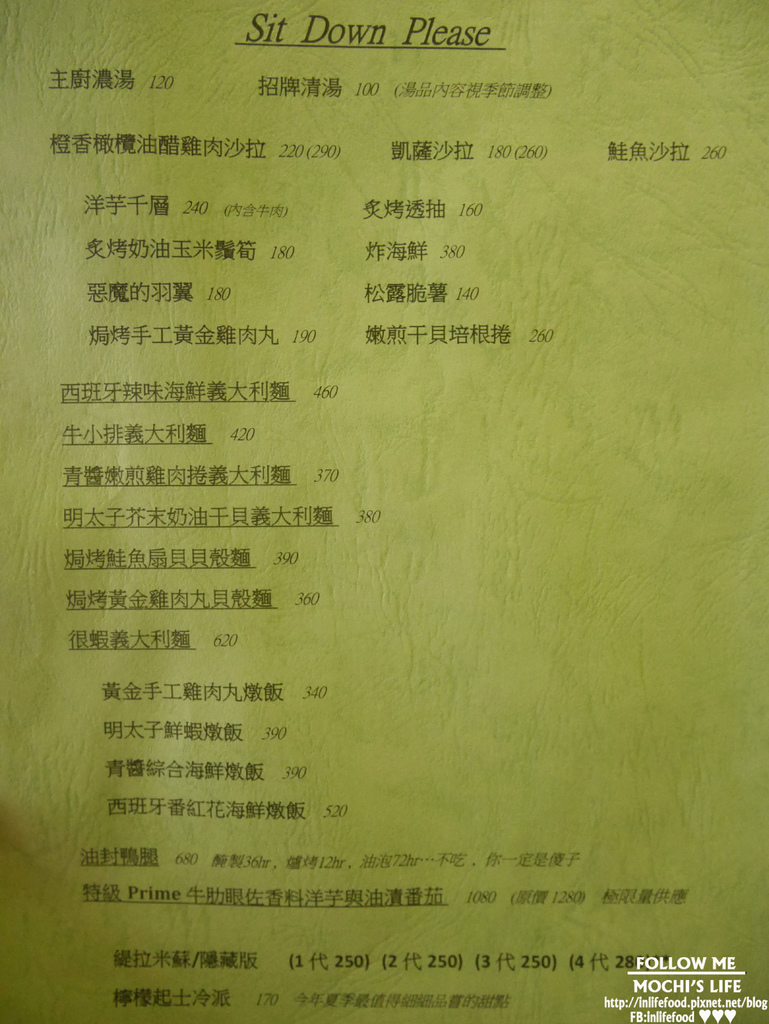 Sit Down Please
主廚濃湯 120 招牌清湯 100 (湯品內容視季節調整)
橙香橄欖油醋雞肉沙拉 220 (290) 凱薩沙拉 180 (260) 鮭魚沙拉 260
洋芋千層 240 (內含牛肉) 炙烤透抽 160
炙烤奶油玉米鬚筍 180 炸海鮮 380
惡魔的羽翼 180 松露脆薯 140
焗烤手工黃金雞肉丸 190 嫩煎干貝培根捲 260
西班牙辣味海鮮義大利麵 460
牛小排義大利麵 420
青醬嫩煎雞肉捲義大利麵 370
明太子芥末奶油干貝義大利麵 380
焗烤鮭魚扇貝貝殼麵 390
焗烤黃金雞肉丸貝殼麵 360
很蝦義大利麵 620
黃金手工雞肉丸燉飯 340
明太子鮮蝦燉飯 390
青醬綜合海鮮燉飯 390
西班牙番紅花海鮮燉飯 520
油封鴨腿 680 醃製36hr，爐烤12hr，油泡72hr…不吃，你一定是傻子
特級 Prime 牛肋眼佐香料洋芋與油漬番茄 1080 (原價 1280) 極限量供應
緹拉米蘇/隱藏版 (1 代 250) (2 代 250) (3 代 250) (4 代
檸檬起士冷派 170 今年夏季最值得細細品嘗的甜點
FOLLOW ME
MOCHI'S LIFE
http://inlifefood.pixnet.net/blog
FB:inlifefood ♥♥♥